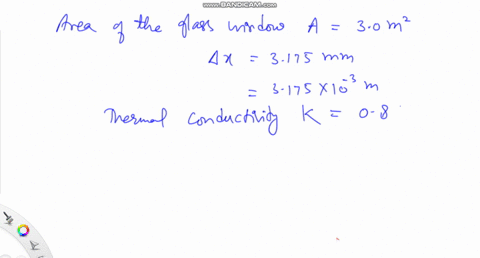 www.BANDICAM.com
Area of the glass window A = 3.0 m²
Δx = 3.175 mm
= 3.175 × 10⁻³ m
Thermal conductivity K = 0.8